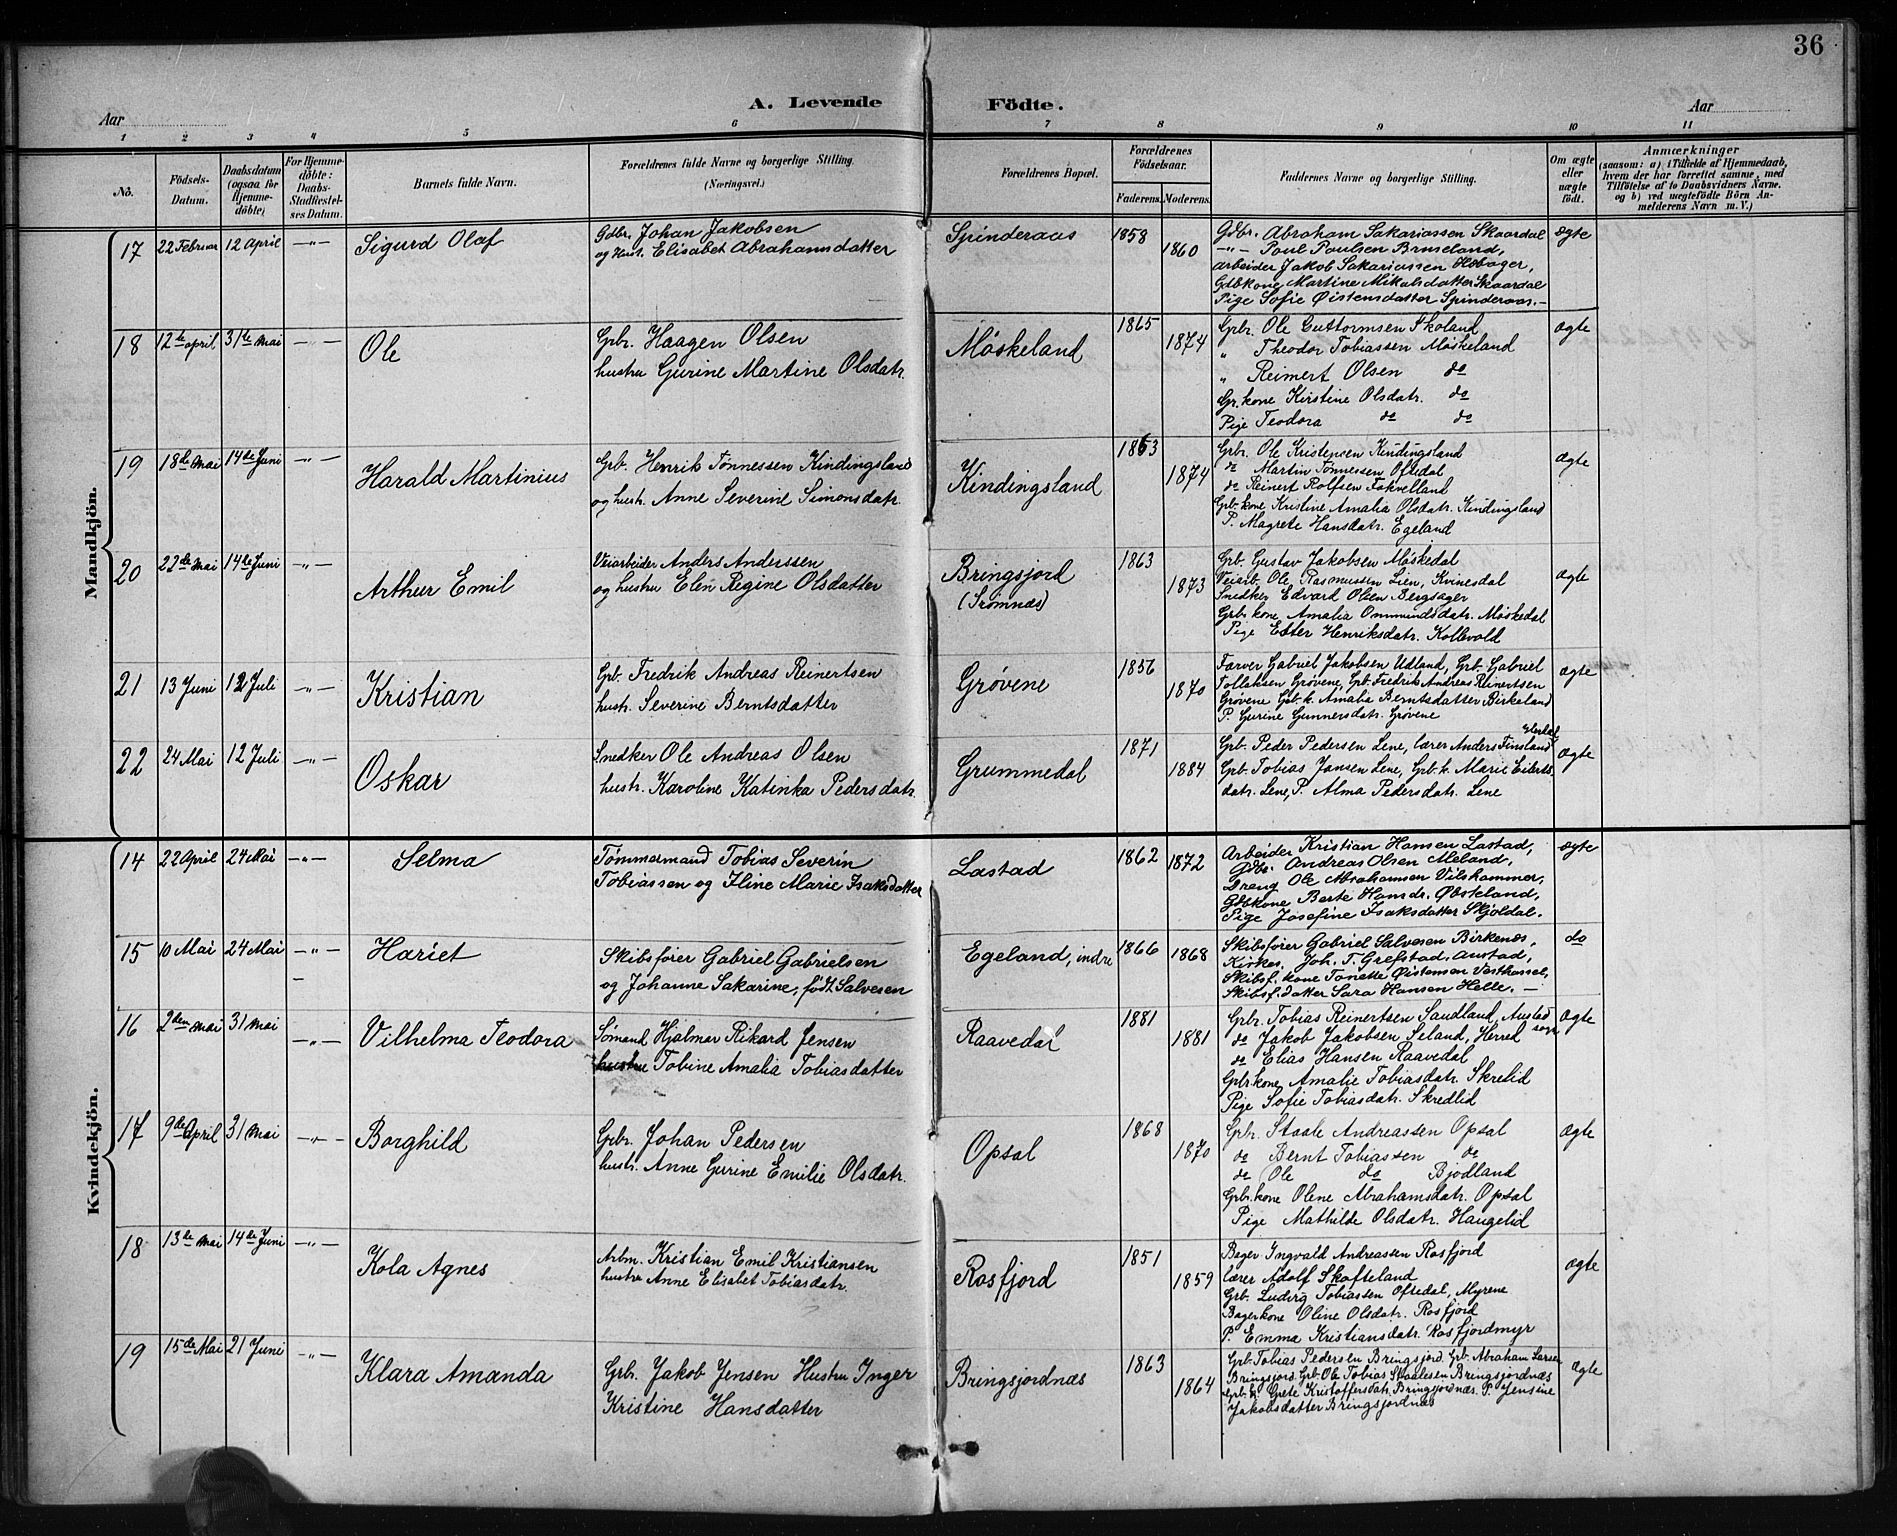 36
A. Levende Födte.
Aar Aar
1 2 3 4 5 6 7 8 9 10 11
No.
Födsels-Datum.
Daabsdatum (ogsaa for Hjemmedöbte)
For Hjemmedöbte: Daabs-Stadfæstelses Datum.
Barnets fulde Navn.
Forældrenes fulde Navne og borgerlige Stilling.
(Næringsvei.)
Forældrenes Bopæl.
Forældrenes Födselsaar.
Faderens. Moderens.
Faddernes Navne og borgerlige Stilling.
Om ægte eller uægte födt.
Anmærkninger
(saasom: a) i Tilfælde af Hjemmedaab,
hvem der har forrettet samme, med
Tilföielse af to Daabsvidners Navne.
og b) ved uægtefödte Börn An-
melderens Navn m. V.)
Mandkjön.
17 22 Februar 12 April -"- Sigurd Olaf
Gdbr. Johan Jakobsen
og Hust. Elisabet Abrahamsdatter
Spinderaas 1858 1860
Gdbr. Abraham Sakariassen Skaardal
-"- Poul Poulsen Bruseland,
arbeider Jakob Sakariassen Høbager,
Gdbkone Martine Mikalsdatter Skaardal
Pige Sofie Øistensdatter Spinderaas.-
ægte
18 12te april 31te mai -"- Ole
Grbr. Haagen Olsen
hustru Gurine Martine Olsdatr.
Møskeland 1865 1874
Grbr. Ole Guttormsen Skoland
" Theodor Tobiassen Møskeland
" Reimert Olsen do
Gr.kone Kirstine Olsdatr. do
Pige Teodora do do
ægte
19 18de mai 14de Juni -"- Harald Martinius
Grb. Henrik Tønnessen Kindingsland
og hust. Anne Severine Simonsdatr.
Kindingsland 1863 1874
Grbr. Ole Kristensen Kindingsland
do Martin Tønnessen Oftedal
do Reinert Rolfsen Fokvelland
Grb.kone Kristine Amalia Olsdatr. Kindingsland
P. Magrete Hansdatr. Egeland
ægte
20 22de mai 14de Juni -"- Arthur Emil
Veiarbeider Anders Anderssen
og hustru Elen Regine Olsdatter
Bringsjord
(Strømnæs) 1863 1873
Grb. Gustav Jakobsen Møskedal
Veiarb. Ole Rasmussen Lien, Kvinesdal
Snedker Edvard Olsen Bergsager
Grb.kone Amalia Ommundsdatr. Møskedal
Pige Ester Henriksdatr. Kollevold
ægte
21 13 Juni 12 Juli -"- Kristian
Grb. Fredrik Andreas Reinertsen
hustr. Severine Berntsdatter
Grøvene 1856 1870
Farver Gabriel Jakobsen Udland, Grb. Gabriel
Tollaksen Grøvene, Grb. Fredrik Andreas Reinertsen
Grøvene Grb.k. Amalia Berntsdatter Birkeland
P. Gurine Gunnersdatr. Grøvene
ægte
22 24 Mai 12 Juli -"- Oskar
Snedker Ole Andreas Olsen
hustr. Karoline Katinka Pedersdatr.
Grummedal 1871 1884
Grb. Peder Pedersen Lene, lærer Anders Finsland
Grb. Tobias Jansen Lene, Grb.k. Marie Eilerts-
datr. Lene, P. Alma Pedersdatr. Lene
ægte
Kvindekjön.
14 22 April 24 Mai -"- Selma
Tømmermand Tobias Severin
Tobiassen og Iline Marie Isaksdatter
Lastad 1862 1872
Arbeider Kristian Hansen Lastad,
Gdbr. Andreas Olsen Meland,
Dreng Ole Abrahamsen Vilshammer,
Gdbkone Berte Hansdr. Øbsteland,
Pige Josefine Isaksdatter Skjoldal.
ægte
15 10 Mai 24 Mai -"- Hariet
Skibsfører Gabriel Gabrielsen
og Johanne Sakarine, født Salvesen
Egeland, indre 1866 1868
Skibsfører Gabriel Salvesen Birkenæs,
Kirkes. Joh. T. Grefstad, Austad,
Skibsf. kone Tonette Øistensen Vesthassel,
Skibsf.datter Sara Hansen Helle. -
do
16 2den mai 31 Mai -"- Vilhelma Teodora
Sømand Hjalmar Rikard Jensen
hustru Tobine Amalia Tobiasdatter
Raavedal 1881 1881
Grbr. Tobias Reinertsen Sandland, Austad sogn
do Jakob Jakobsen Seland, Herred
do Elias Hansen Raavedal
Grbr.kone Amalie Tobiasdatr. Skrelid
Pige Sofie Tobiasdatr. Skredlid
ægte
17 9de April 31 Mai -"- Borghild
Grbr. Johan Pedersen
hustr. Anne Gurine Emilie Olsdatr.
Opsal 1868 1870
Grbr. Staale Andreassen Opsal
do Bernt Tobiassen do
do Ole do Bjodland
Grb.kone Olene Abrahamsdatr. Opsal
Pige Mathilde Olsdatr. Haugelid
ægte
18 13de Mai 14de Juni -"- Kola Agnes
Arbm. Kristian Emil Kristiansen
hustru Anne Elisabet Tobiasdatr.
Rosfjord 1851 1859
Bager Ingvald Andreassen Rosfjord
lærer Adolf Skofteland
Grb. Ludvig Tobiassen Oftedal, Myrene
Bagerkone Oline Olsdatr. Rosfjord
P. Emma Kristiansdatr. Rosfjordmyr
ægte
19 15de Mai 21 Juni -"- Klara Amanda
Grb. Jakob Jensen Hustru Inger
Kristine Hansdatter
Bringsjordnæs 1863 1864
Grb. Tobias Pedersen Bringsjord. Grb. Abraham Larsen
Bringsjord. Grb. Ole Tobias Staalesen Bringsjordnæs
Grb.k. Grete Kristoffersdatr. Bringsjordnæs. P. Jensine
Jakobsdatter Bringsjordnæs
ægte